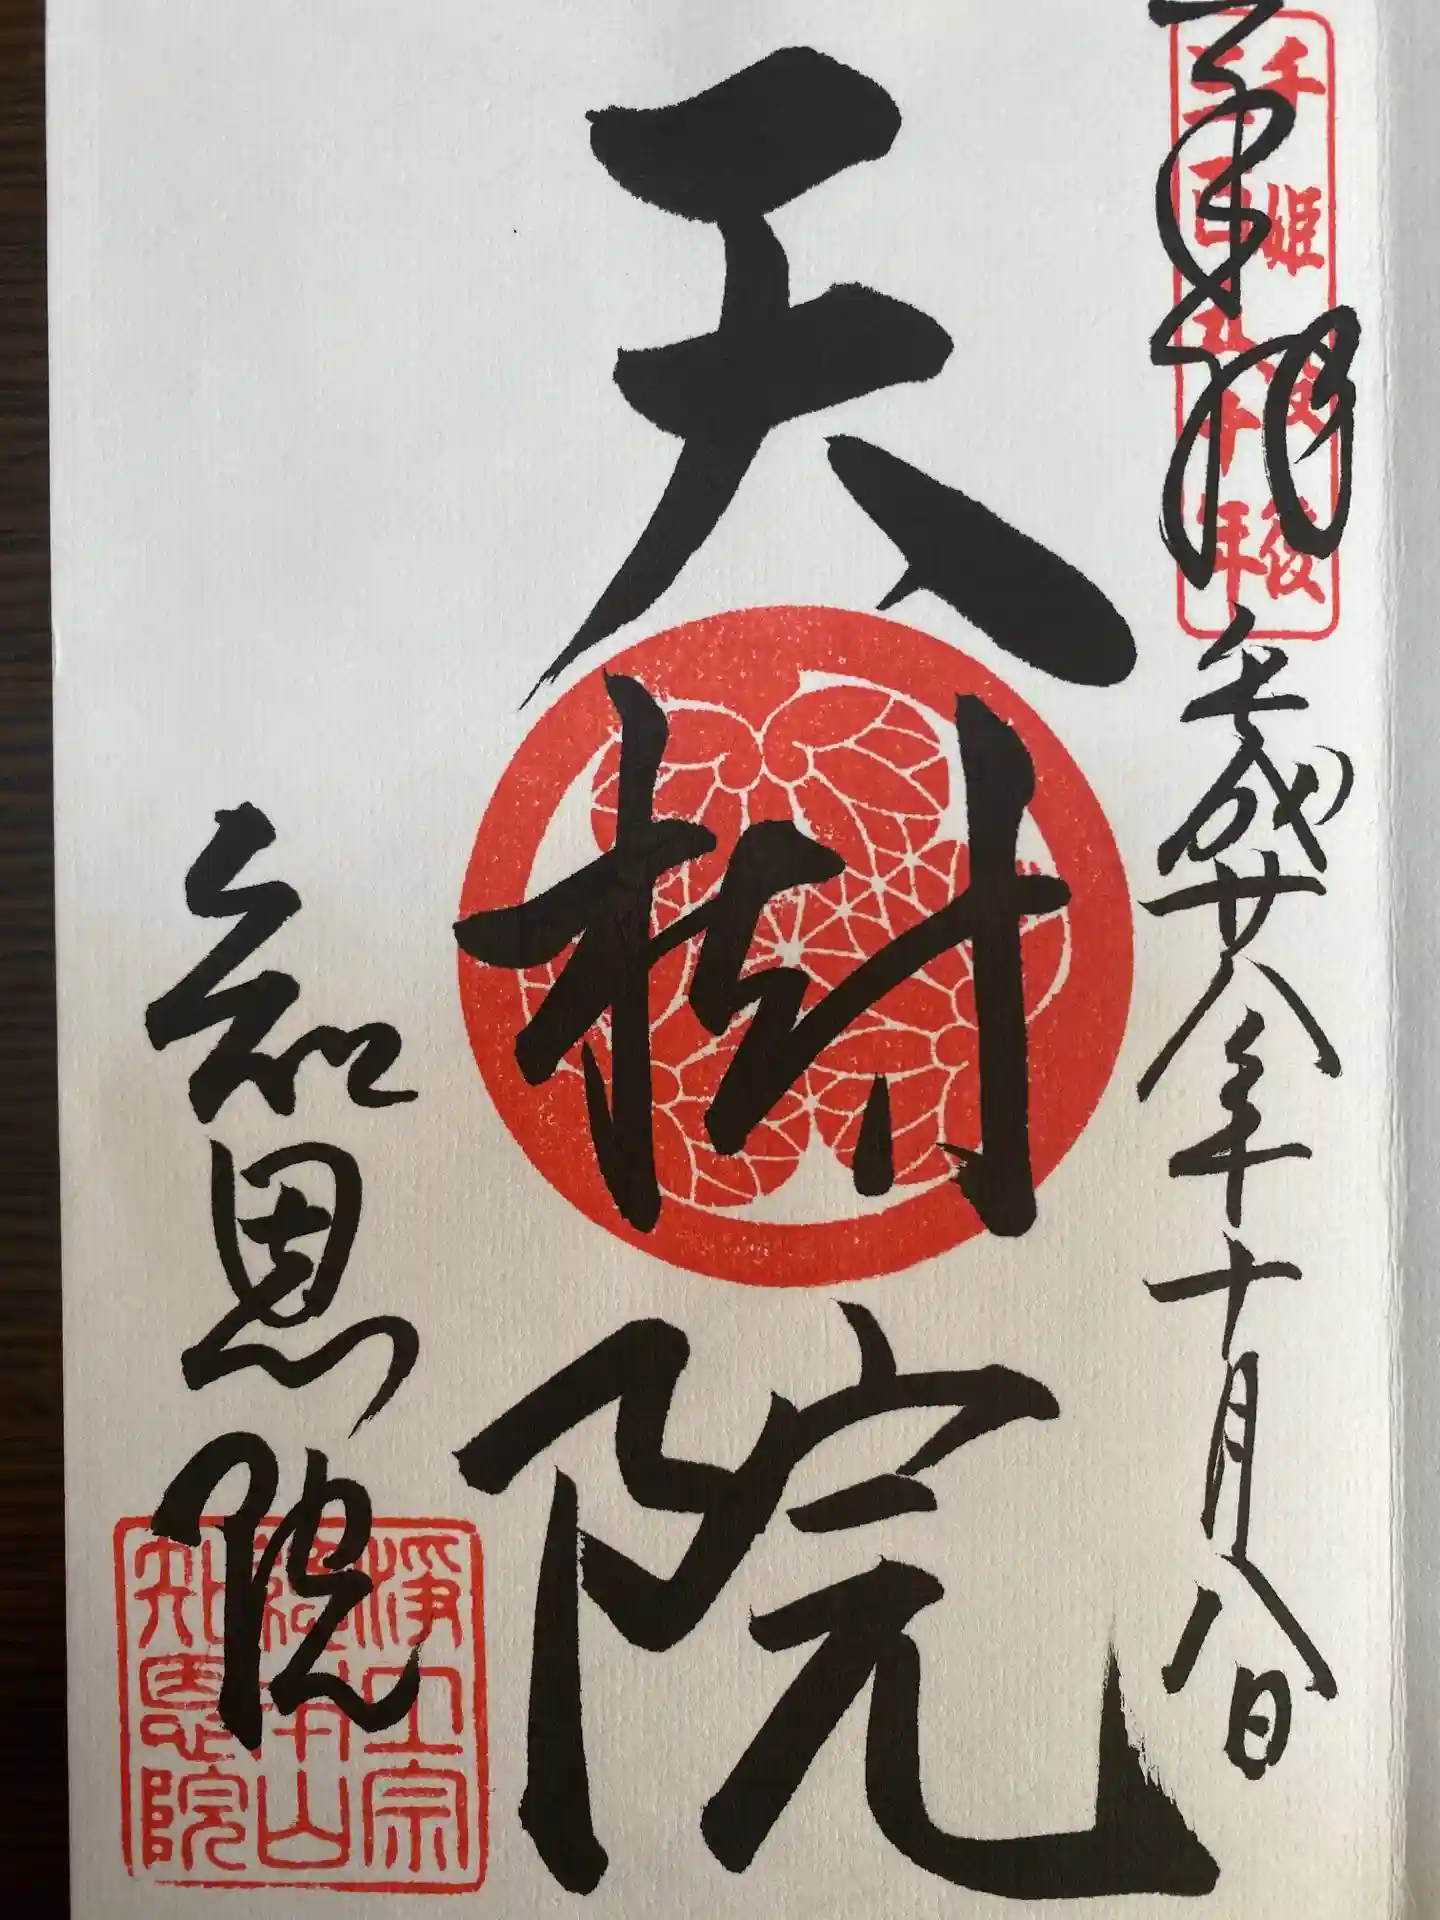 千姫没後
三百五十年
奉拝 平成廿八年十月八日
天樹院
知恩院
浄土宗
総本山
知恩院